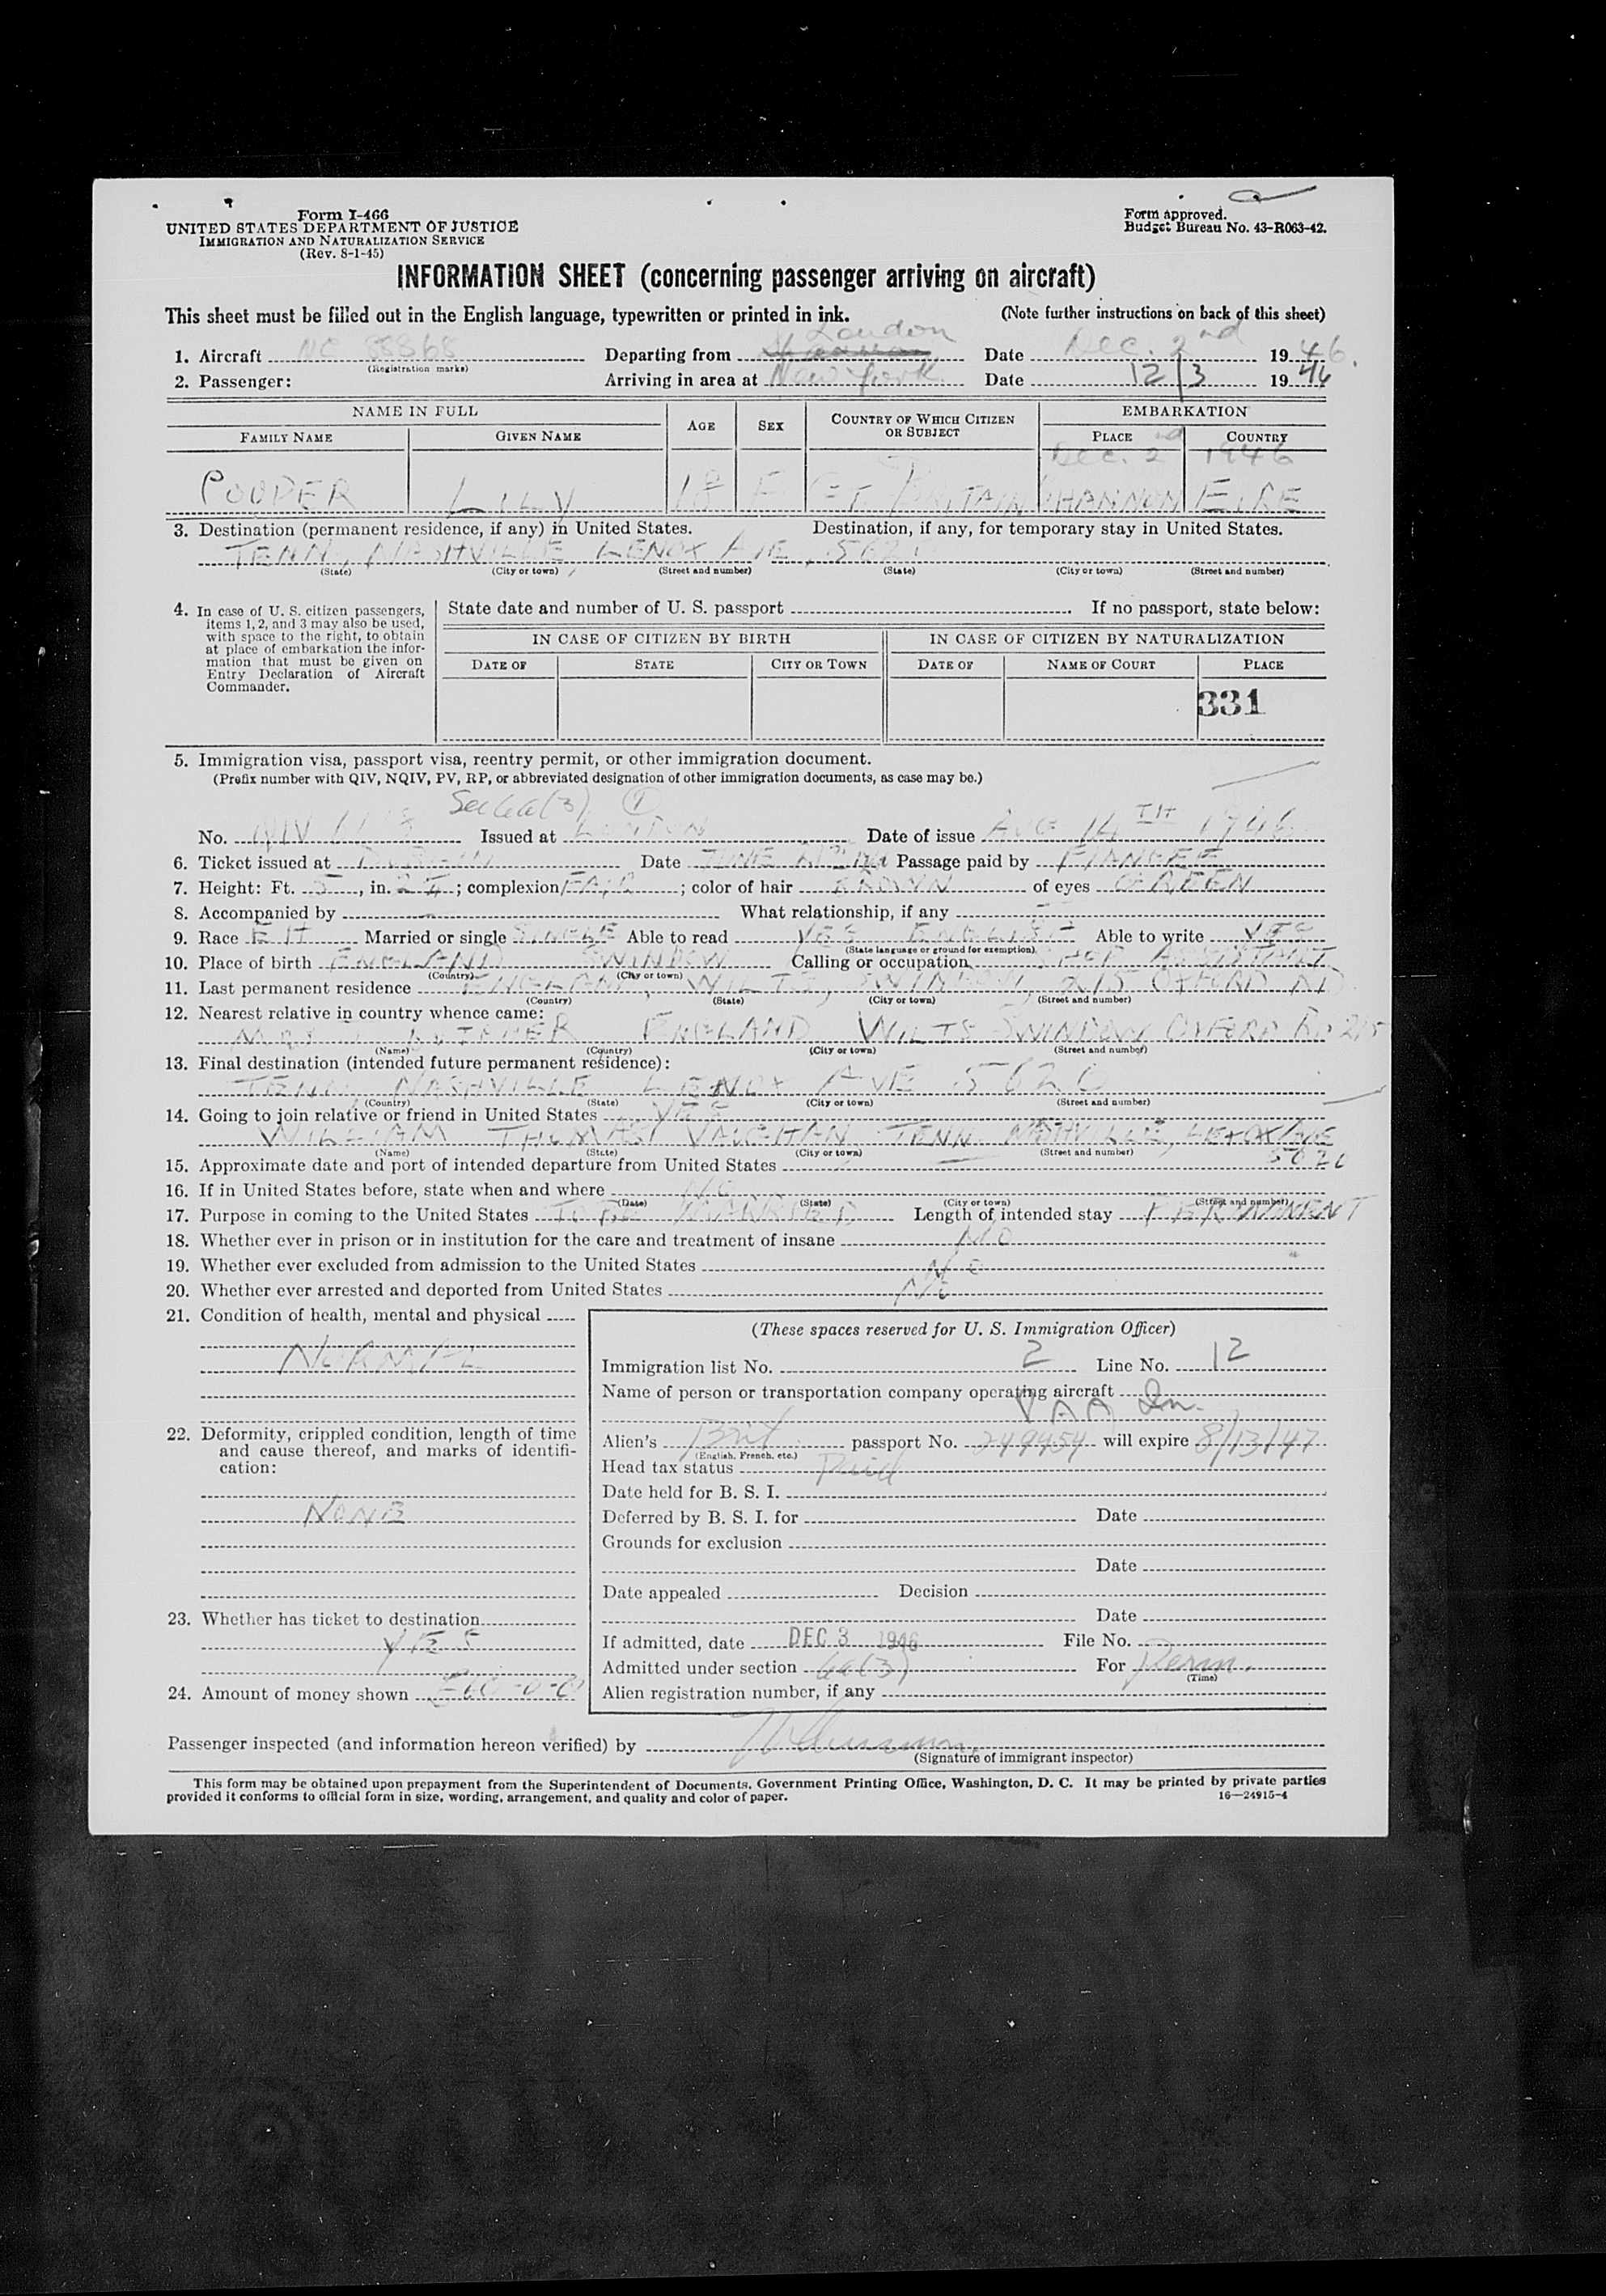 Form I-466
UNITED STATES DEPARTMENT OF JUSTICE
IMMIGRATION AND NATURALIZATION SERVICE
(Rev. 8-1-45)
Form approved.
Budget Bureau No. 43-R063-42.
INFORMATION SHEET (concerning passenger arriving on aircraft)
This sheet must be filled out in the English language, typewritten or printed in ink. (Note further instructions on back of this sheet)
London
1. Aircraft NC 88868 Departing from Date Dec. 2nd 1946.
(Registration marks)
2. Passenger: Arriving in area at New York Date 12/3 1946
NAME IN FULL AGE SEX COUNTRY OF WHICH CITIZEN OR SUBJECT EMBARKATION
FAMILY NAME GIVEN NAME PLACE COUNTRY
Dec. 2nd 1946
LILY 18 F GT. BRITAIN SHANNON EIRE
3. Destination (permanent residence, if any) in United States. Destination, if any, for temporary stay in United States.
TENN, NASHVILLE, LENOX AVE,
(State) (City or town) (Street and number) (State) (City or town) (Street and number)
4. In case of U. S. citizen passengers, items 1, 2, and 3 may also be used, with space to the right, to obtain at place of embarkation the information that must be given on Entry Declaration of Aircraft Commander.
State date and number of U. S. passport . If no passport, state below:
IN CASE OF CITIZEN BY BIRTH IN CASE OF CITIZEN BY NATURALIZATION
DATE OF STATE CITY OR TOWN DATE OF NAME OF COURT PLACE
331
5. Immigration visa, passport visa, reentry permit, or other immigration document.
(Prefix number with QIV, NQIV, PV, RP, or abbreviated designation of other immigration documents, as case may be.)
Sec 6a(3) 1
No. QIV Issued at LONDON Date of issue AUG 14TH 1946
6. Ticket issued at Date JUNE Passage paid by FIANCEE
7. Height: Ft. 5, in. ; complexion FAIR; color of hair BROWN of eyes GREEN
8. Accompanied by — What relationship, if any —
9. Race Married or single SINGLE Able to read YES ENGLISH Able to write YES
(State language or ground for exemption)
10. Place of birth ENGLAND SWINDON Calling or occupation SHOP ASSISTANT
(Country) (City or town)
11. Last permanent residence ENGLAND, WILTS, SWINDON, 215 OXFORD RD
(Country) (State) (City or town) (Street and number)
12. Nearest relative in country whence came:
ENGLAND WILTS SWINDON OXFORD RD 215
(Name) (Country) (City or town) (Street and number)
13. Final destination (intended future permanent residence):
TENN, NASHVILLE LENOX AVE 5620
(Country) (State) (City or town) (Street and number)
14. Going to join relative or friend in United States YES
WILLIAM THOMAS VAUGHAN, TENN. NASHVILLE, LENOX AVE
(Name) (State) (City or town) (Street and number) 5620
15. Approximate date and port of intended departure from United States —
16. If in United States before, state when and where NO
(Date) (State) (City or town) (Street and number)
17. Purpose in coming to the United States TO BE MARRIED Length of intended stay PERMANENT
18. Whether ever in prison or in institution for the care and treatment of insane NO
19. Whether ever excluded from admission to the United States NO
20. Whether ever arrested and deported from United States NO
21. Condition of health, mental and physical
NORMAL
22. Deformity, crippled condition, length of time and cause thereof, and marks of identification:
NONE
23. Whether has ticket to destination
YES
24. Amount of money shown
(These spaces reserved for U. S. Immigration Officer)
Immigration list No. 2 Line No. 12
Name of person or transportation company operating aircraft
PAA In.
Alien's Brit passport No. 249454 will expire 8/13/47
(English, French, etc.)
Head tax status Paid
Date held for B. S. I.
Deferred by B. S. I. for Date
Grounds for exclusion
Date
Date appealed Decision
Date
If admitted, date DEC 3 1946 File No.
Admitted under section 6a(3) For Perm.
(Time)
Alien registration number, if any
Passenger inspected (and information hereon verified) by
(Signature of immigrant inspector)
This form may be obtained upon prepayment from the Superintendent of Documents, Government Printing Office, Washington, D. C. It may be printed by private parties
provided it conforms to official form in size, wording, arrangement, and quality and color of paper. 16—24915-4